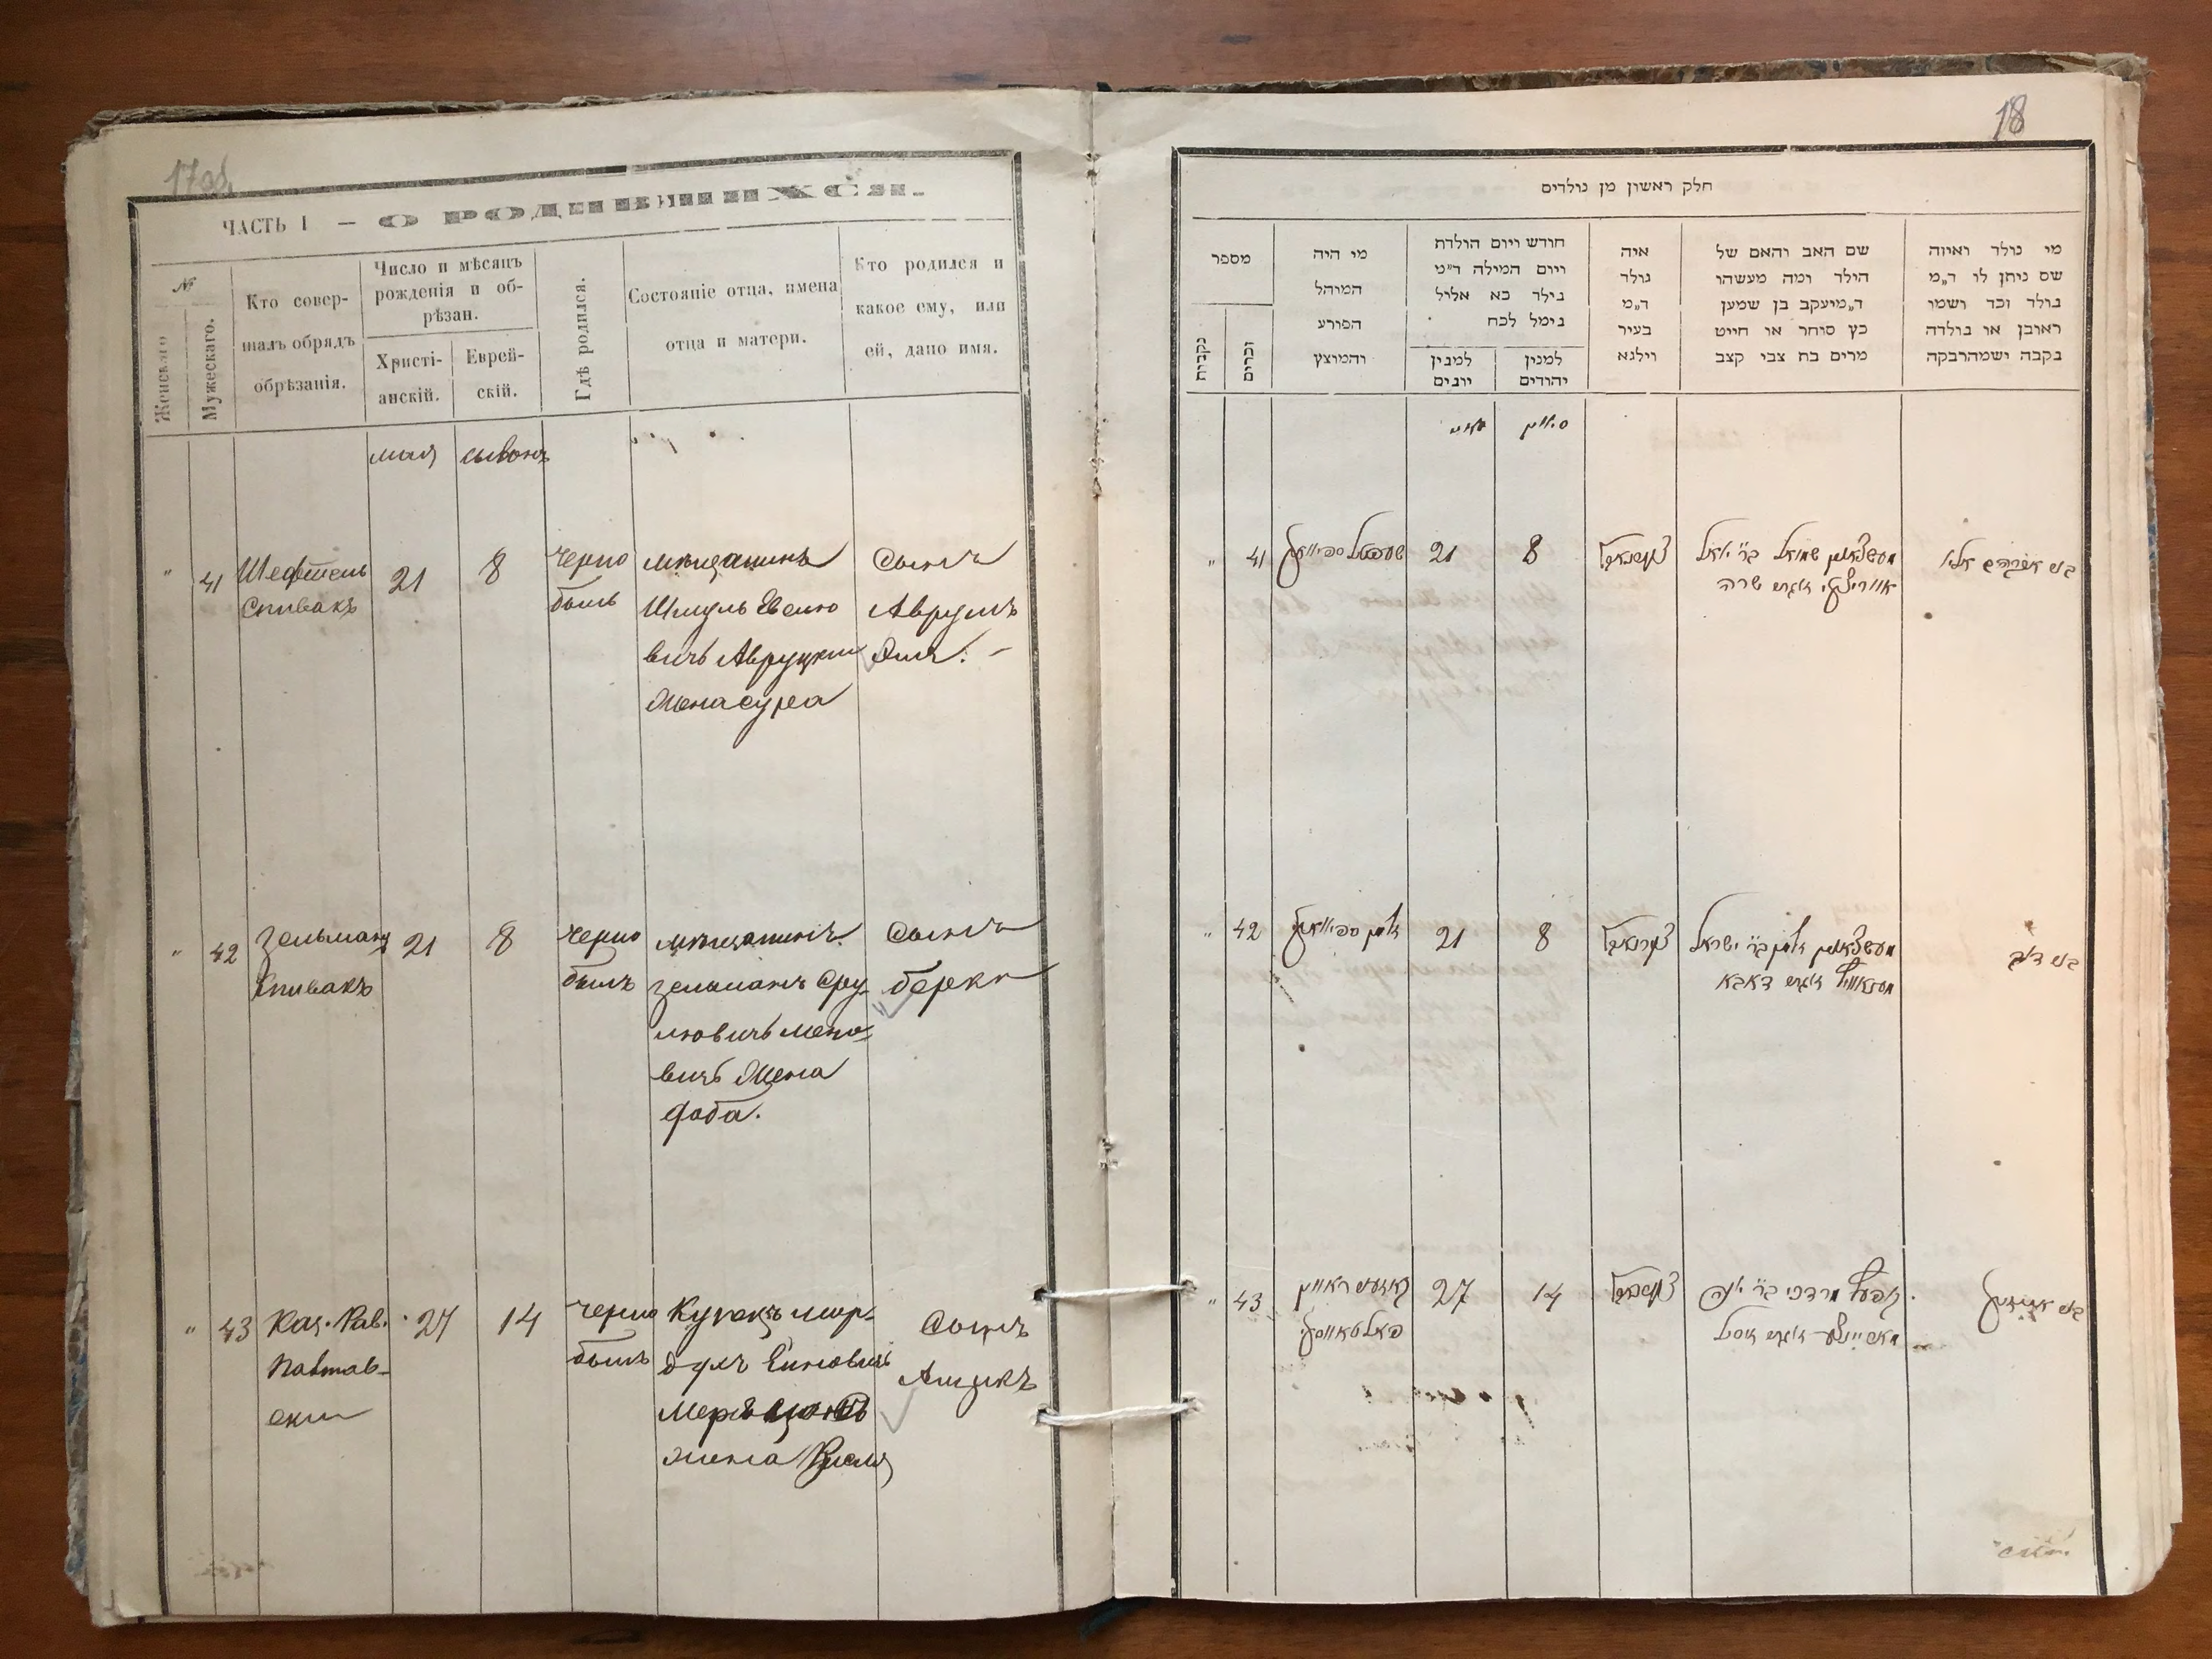 17 об.
ЧАСТЬ I — О РОДИВШИХСЯ.
№
Женскаго
Мужескаго.
Кто совер-
шалъ обрядъ
обрѣзанія.
Число и мѣсяцъ
рожденія и об-
рѣзан.
Христі-
анскій.
Еврей-
скій.
Гдѣ родился.
Состояніе отца, имена
отца и матери.
Кто родился и
какое ему, или
ей, дано имя.
мая
сивонъ
" 41
Шефтель
Спивакъ
21
8
Черно
быль
мѣщанинъ
Шмуль Евсио
вичъ Авруцкий
Жена сура
Сынъ
Аврумъ
Эля. -
" 42
Зельманъ
Спивакъ
21
8
Черно
быль
мѣщанинъ
Зельманъ Сру-
люовичъ
вичъ Жена
доба.
Сынъ
берко
" 43
Каз. Рав.
Павтав-
ски
27
14
Черно
быль
Купецъ мор-
духъ
жена
Сынъ
Аизикъ
18
חלק ראשון מן נולדים
מספר
נקבות
זכרים
מי היה
המוהל
הפורע
והמוצץ
חודש ויום הולדת
ויום המילה ד״מ
נילד כא אליל
נימל לכח
למנין
יונים
למנין
יהודים
איה
נולד
ד״מ
בעיר
וילנא
שם האב והאם של
הילד ומה מעשהו
ד״מיעקב בן שמען
כץ סוחר או חייט
מרים בח צבי קצב
מי נולד ואיזה
שם ניתן לו ד״מ
נולד זכד ושמו
ראובן או נולדה
נקבה ישמהרבקה
מאיי
סיון
" 41
שעפטל ספיוואק
21
8
צערנאביל
מעשצאנין שמואל ב״ר יואל
אוורוצקי זוגתו שרה
בן אברהם אליו
" 42
זלמן ספיוואק
21
8
צערנאביל
מעשצאנין זלמן ב״ר ישראל
זוגתו דאבא
בן דוב
" 43
קאזיאני ראווין
פאלטאווסקי
27
14
צערנאביל
קופעץ מרדכי ב״ר
זוגתו
בן אייזיק